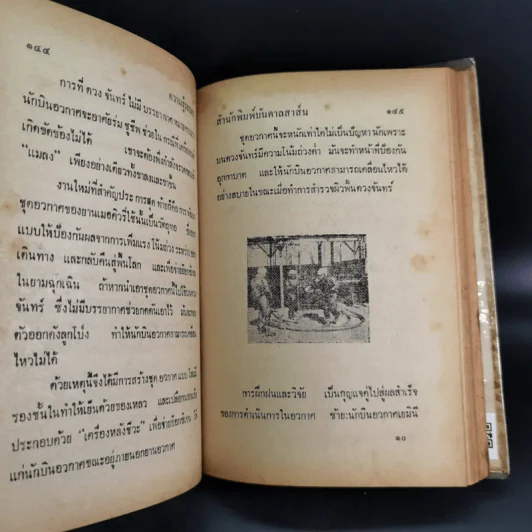 ๑๔๔
การที่ ดวง จันทร์ ไม่มี บรรยากาศ
นักบินอวกาศจะอาศัยร่ม ชูชีพ ช่วยใน การ
เกิดขัดข้องไม่ได้ เขาจะต้อง
“แมลง” เพียงอย่างเดียวทั้งขาลงและขาขึ้น
งานใหม่ที่สำคัญประการ
ชุดอวกาศของยานเมอคิวรี่ใช้นั้นเป็นวัตถุทอ
แบบให้ป้องกันผลจากการเพิ่มแรงโน้มถ่วง
เดินทาง และกลับคืนสู่พื้นโลก และเพื่อช่วย
ในยามฉุกเฉิน ถ้าหากนำเอาชุดอวกาศนี้ไป
จันทร์ ซึ่งไม่มีบรรยากาศช่วยกดดันเอาไว้
ตัวออกดังลูกโป่ง ทำให้นักบินอวกาศสามารถ
ไหวไม่ได้
ด้วยเหตุนี้จึงได้มีการสร้างชุด อวกาศ แบบ
รองชั้นในทำให้เย็นด้วยของเหลว และเปลี่ยน
ประกอบด้วย “เครื่องหลังชีวะ” เพื่อช่วย
แก่นักบินอวกาศขณะอยู่ภายนอกยานอวกาศ
สำนักพิมพ์บันดาลสาส์น ๑๔๕
ชุดอวกาศนี้จะหนักเท่าใดไม่เป็นปัญหา นักเพราะ
บนดวงจันทร์มีความโน้มถ่วงต่ำ มันจะทำหน้าที่ป้องกัน
อุกกาบาต และให้นักบินอวกาศสามารถเคลื่อนไหวได้
อย่างสบายในขณะเมื่อทำการสำรวจผิวพื้นดวงจันทร์
การฝึกฝนและวิจัย เป็นกุญแจคู่ไปสู่ผลสำเร็จ
ของการดำเนินการในอวกาศ ซ้าย:นักบินอวกาศเยมินี
๑๐